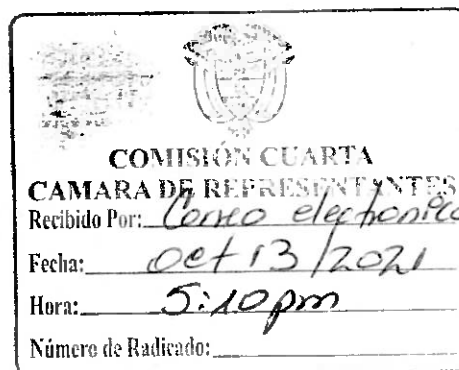 COMISIÓN CUARTA
CAMARA DE REPRESENTANTES
Recibido Por: Correo electronico
Fecha: oct 13/2021
Hora: 5:10 pm
Número de Radicado: